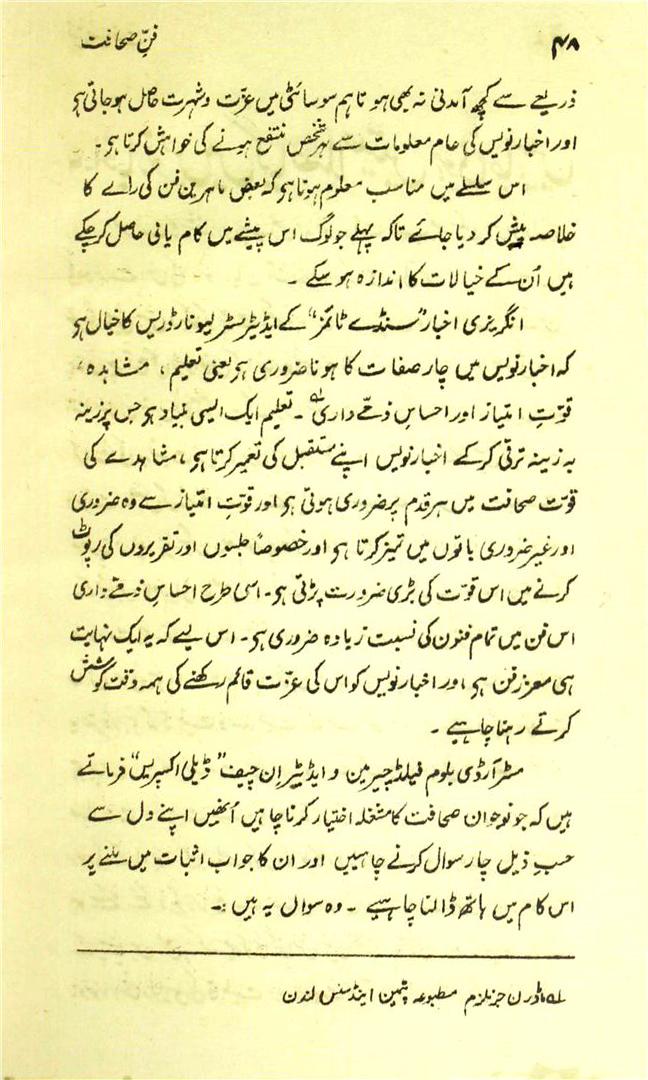 ۴۸
فنِّ صحافت
ذریعے سے کچھ آمدنی نہ بھی ہو تاہم سوسائٹی میں عزّت و شہرت حاصل ہوجاتی ہو
اور اخبار نویس کی عام معلومات سے ہر شخص منتفع ہونے کی خواہش کرتا ہو۔
اس سلسلے میں مناسب معلوم ہوتا ہو کہ بعض ماہرینِ فن کی راے کا
خلاصہ پیش کر دیا جائے تاکہ پہلے جو لوگ اس پیشے میں کام یابی حاصل کرچکے
ہیں اُن کے خیالات کا اندازہ ہو سکے ۔
انگریزی اخبار "سنڈے ٹائمز" کے ایڈیٹر مسٹر لیونارڈوریس کا خیال ہو
کہ اخبار نویس میں چار صفات کا ہونا ضروری ہو یعنی تعلیم ، مشاہدہ،
قوّتِ امتیاز اور احساسِ ذمّے داری لہ۔ تعلیم ایک ایسی بنیاد ہو جس پر زینہ
بہ زینہ ترقی کرکے اخبار نویس اپنے مستقبل کی تعمیر کرتا ہو ، مشاہدے کی
قوّت صحافت میں ہر قدم پر ضروری ہوتی ہو اور قوّتِ امتیاز سے وہ ضروری
اور غیر ضروری باتوں میں تمیز کرتا ہو اور خصوصاً جلسوں اور تقریروں کی رپوٹ
کرنے میں اس قوّت کی بڑی ضرورت پڑتی ہو۔ اسی طرح احساسِ ذمّے داری
اس فن میں تمام فنون کی نسبت زیادہ ضروری ہو۔ اس لیے کہ یہ ایک نہایت
ہی معزز فن ہو ، اور اخبار نویس کو اس کی عزّت قائم رکھنے کی ہمہ وقت کوشش
کرتے رہنا چاہیے ۔
مسٹر آر ڈی بلوم فیلڈ چیرمین و ایڈیٹر اِن چیف "ڈیلی اکسپریس" فرماتے
ہیں کہ جو نوجوان صحافت کا مشغلہ اختیار کرنا چاہیں اُنھیں اپنے دل سے
حسبِ ذیل چار سوال کرنے چاہییں اور ان کا جواب اثبات میں ملنے پر
اس کام میں ہاتھ ڈالنا چاہیے ۔ وہ سوال یہ ہیں :۔
لہ ماڈرن جرنلزم مطبوعہ پٹمین اینڈ سنس لندن